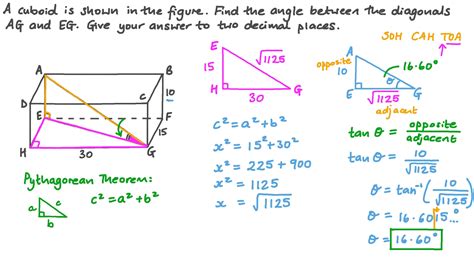 A cuboid is shown in the figure. Find the angle between the diagonals
AG and EG. Give your answer to two decimal places.
A
B
D
C
10
E
F
15
H
30
G
Pythagorean Theorem:
a
c
b
c² = a² + b²
E
15
√1125
H
30
G
c² = a² + b²
x² = 15² + 30²
x² = 225 + 900
x² = 1125
x = √1125
SOH CAH TOA
A
opposite
10
16.60°
θ
E
√1125
G
adjacent
tan θ = opposite / adjacent
tan θ = 10 / √1125
θ = tan⁻¹ (10 / √1125)
θ = 16.6015...°
θ = 16.60°